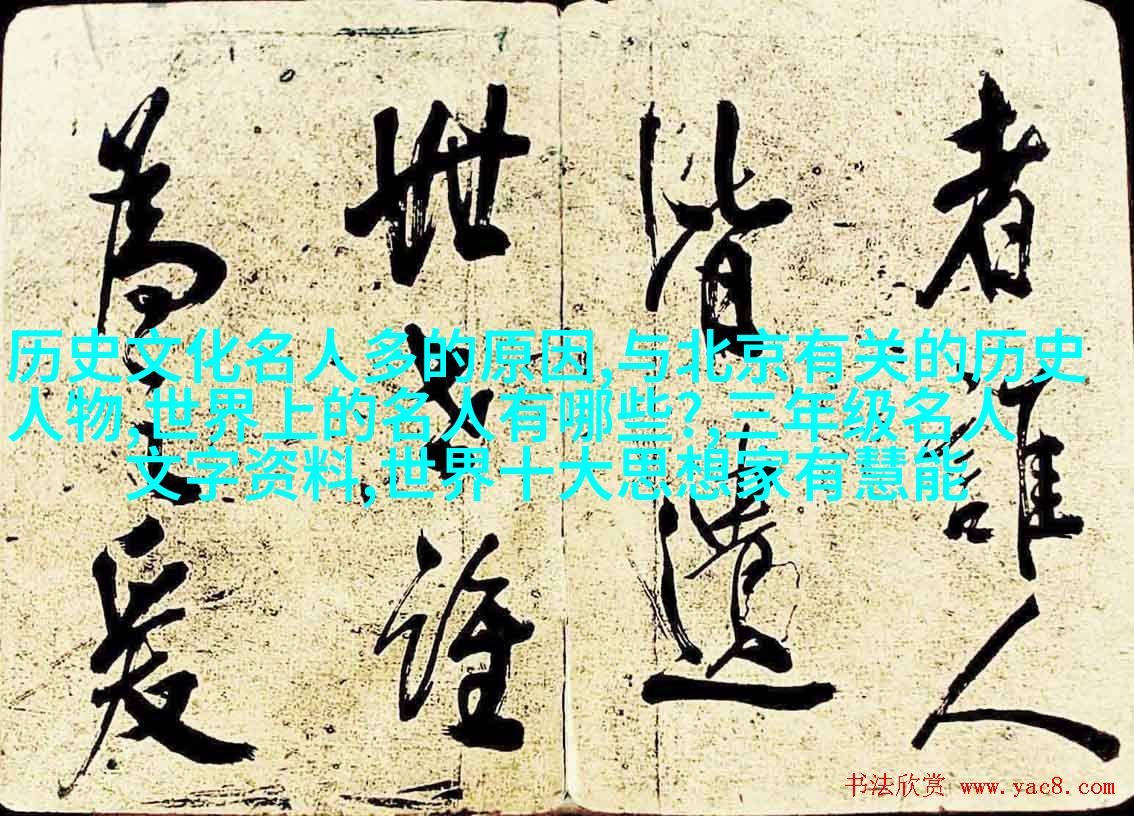 者誰人
皆遺
世誰
為爰
历史文化名人多的原因,与北京有关的历史
人物,世界上的名人有哪些?,三年级名人
文字资料,世界十大思想家有慧能
书法欣赏 www.yac8.com